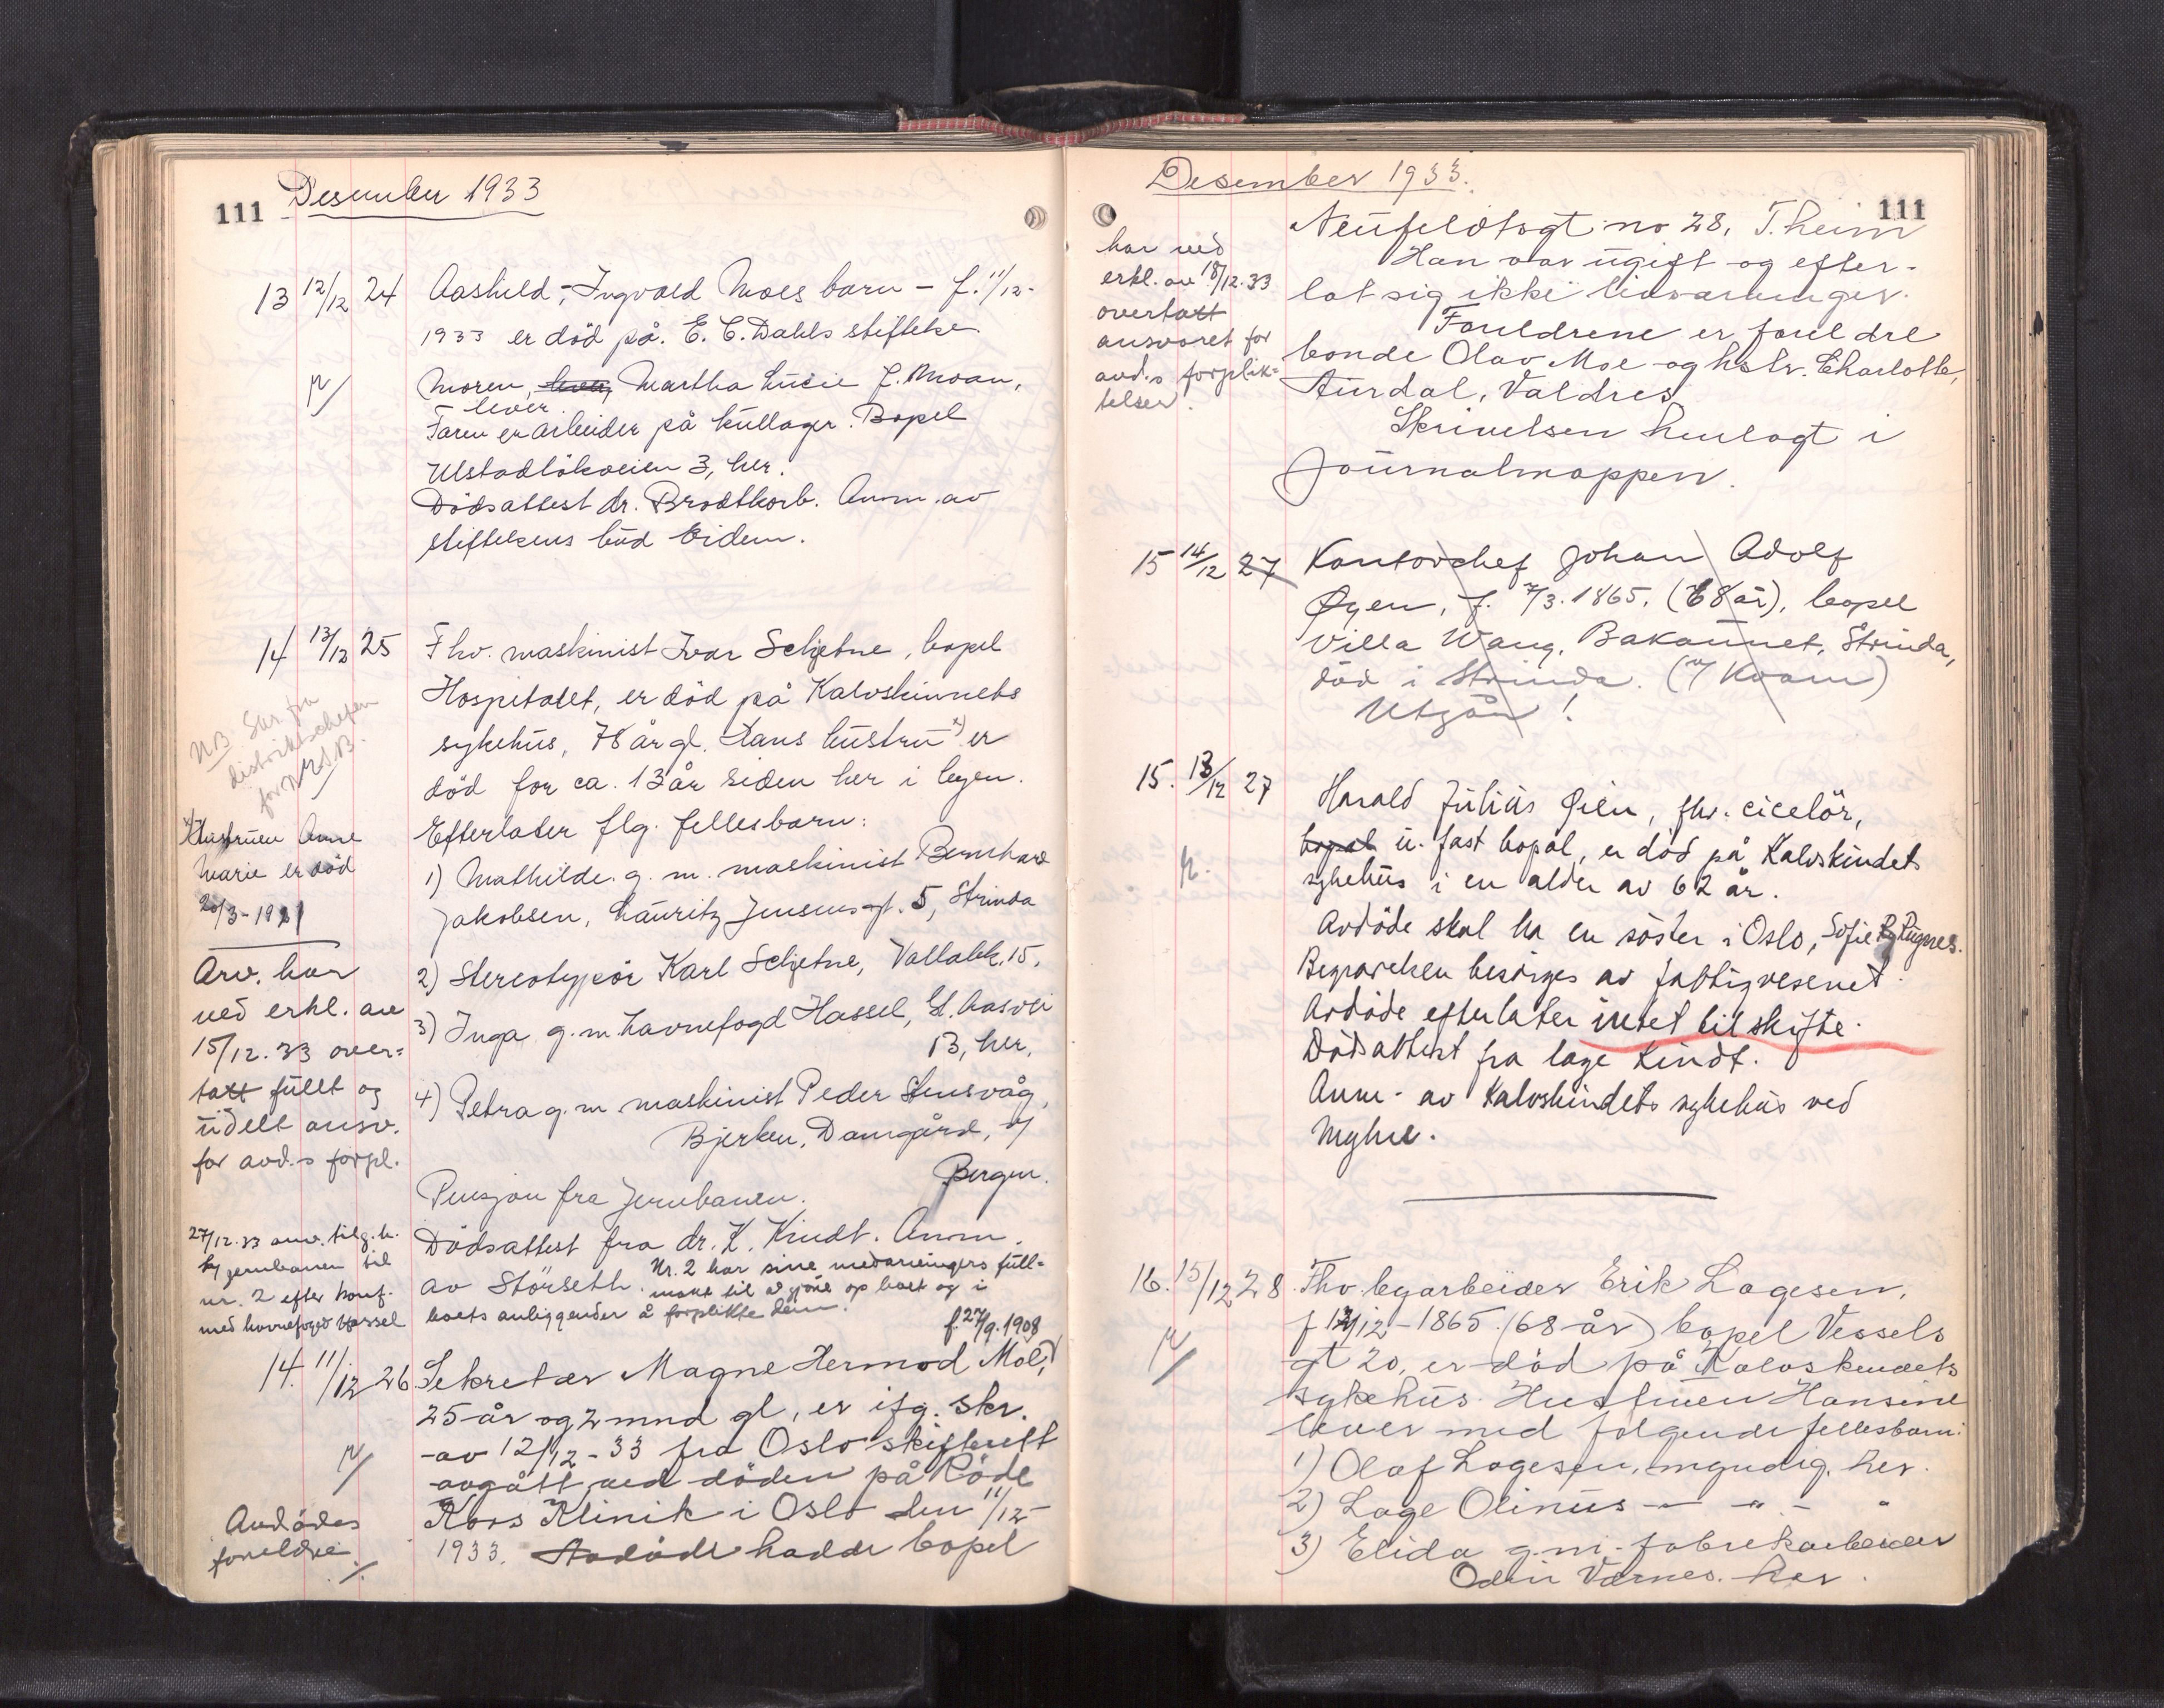 111 Desember 1933
13 12/12 24 Aashild, Ingvald Moes barn - f. 11/12-
1933 er död på E. C. Dahls stiftelse
Moren, lever, Martha Lucie f. Moan,
lever.
Faren er arbeider på kullager. Bopel
Ulstadlökveien 3, her.
Dödsattest dr. Brodtkorb. Anm. av
stiftelsens bud Eidem.
14 13/12 25 Fhv. maskinist Ivar Schjetne, bopel
Hospitalet, er död på Kalvskinnets
sykehus, 78 år gl. Hans hustru x) er
död for ca. 13 år siden her i byen.
Efterlater flg. fellesbarn:
1) Mathilde g. m. maskinist Bernhard
Jakobsen, Lauritz Jensensgt. 5, Strinda
2) Stereotypör Karl Schjetne, Vollabk. 15.
3) Inga g. m. havnefogd Hassel, Gl. Aasvei
13, her.
4) Petra g. m. maskinist Peder Stensvåg,
Bjerken, Damgård,
Bergen.
Pensjon fra Jernbanen.
Dödsattest fra dr. K. Kindt. Anm.
av Störseth. Nr. 2 har sine medarvingers full-
makt til å gjöre op boet og i
boets anliggender å forplikte dem.
NB Skr. fra
distriktschefen
for N.S.B.
x) Hustruen Anne
Marie er död
20/3-1921
Arv. har
ved erkl. av
15/12.33 over=
tatt fullt og
udelt ansv.
for avd.s forpl.
27/12.33 anv. tilg. h.
jernbanen til
nr. 2 efter konf.
med havnefoged Hassel
f. 27/9.1908
14. 11/12 26 Sekretær Magne Hermod Moe,
25 år og 2 mnd gl, er ifg. skr.
av 12/12-33 fra Oslo skifterett
avgått ved döden på Röde
Kors Klinik i Oslo den 11/12-
1933. Avdöde hadde bopel
Avdödes
foreldre
./.
Desember 1933.
111
Neufeldtsgt no 28, T.heim
Han var ugift og efter-
lot sig ikke livsarvinger.
Foreldrene er foreldre
bonde Olav Moe og hstr. Charlotte,
Aurdal, Valdres
Skrivelsen henlagt i
Journalmappen.
har ved
erkl. av 18/12.33
overtatt
ansvaret for
avd.s forplik=
telser.
15 14/12 27 Kontorchef Johan Adolf
Øyen, f. 7/3.1865. (68 år), bopel
Villa Wang, Bakaunet, Strinda,
död i Strinda. (Kvam)
Utgår!
15. 13/12 27 Harald Julius Øien, fhv. ciselör,
bopel u. fast bopel, er död på Kalvskindet
sykehus i en alder av 62 år.
Avdöde skal ha en söster i Oslo, Sofie Rygnes.
Begravelsen besörges av fattigvesenet.
Avdöde efterlater intet til skifte.
Dödsattest fra læge Kindt.
Anm. av Kalvskindets sykehus ved
Myhre.
16. 15/12 28 Fhv. byarbeider Erik Lagesen,
f 12/12-1865 (68 år) bopel Vessels
gt 20, er död på Kalvskindets
sykehus. Hustruen Hansine
lever med fölgende fellesbarn:
1) Olaf Lagesen, myndig, her.
2) Lage Olinus - " - "
3) Elida g. m. fabrikarbeider
Odin Værnes. her.